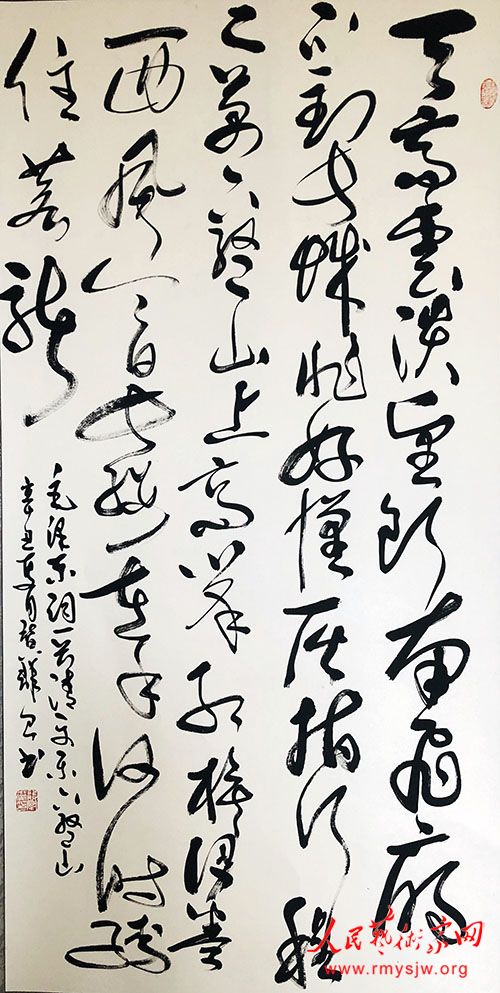 天高雲淡望斷南飛雁
不到长城非好漢屈指行程
二萬六盤山上高峯红旗漫卷
西風今日长缨在手何时缚
住蒼龙
毛泽东词一首清平乐六盤山
辛丑夏月书
人民藝術家网
www.rmysjw.org